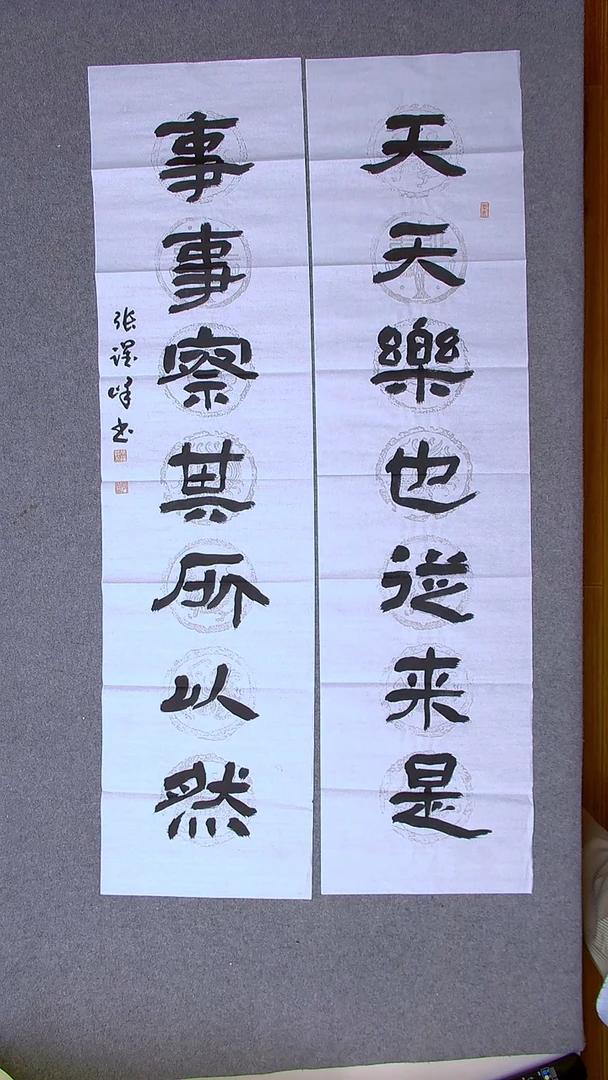 天天樂也從来是
事事察其所以然
张强峰书